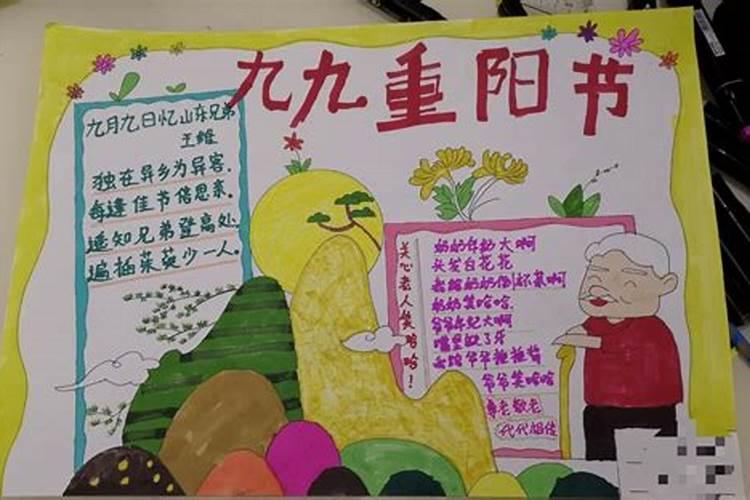 九九重阳节
九月九日忆山东兄弟
王维
独在异乡为异客,
每逢佳节倍思亲。
遥知兄弟登高处,
遍插茱萸少一人。
关心老人笑哈哈!
奶奶年纪大啊
头发白花花
我给奶奶倒杯茶啊
奶奶笑哈哈
爷爷年纪大啊
嘴里缺了牙
我给爷爷捶捶背
爷爷笑哈哈
尊老敬老
代代相传